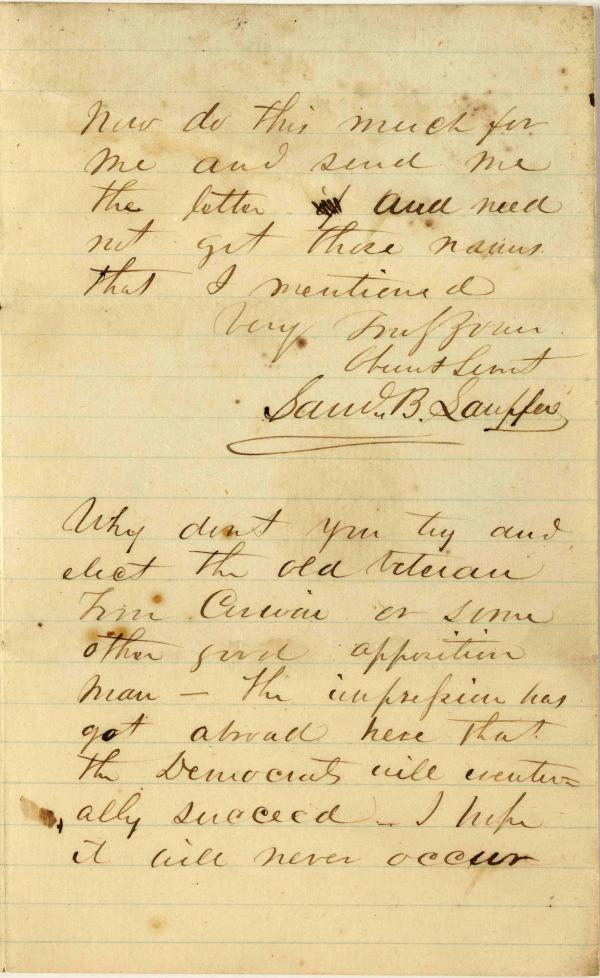 Now do this much for
me and send me
the letter and need
not get those names
that I mentioned
Very Truly Your
Obent Servt
Saml. B. Lauffer
Why dont you try and
elect the old veteran
Tom Corwin or some
other good opposition
man – the impression has
got abroad here that
the Democrats will eventu=
ally succeed – I hope
it will never occur